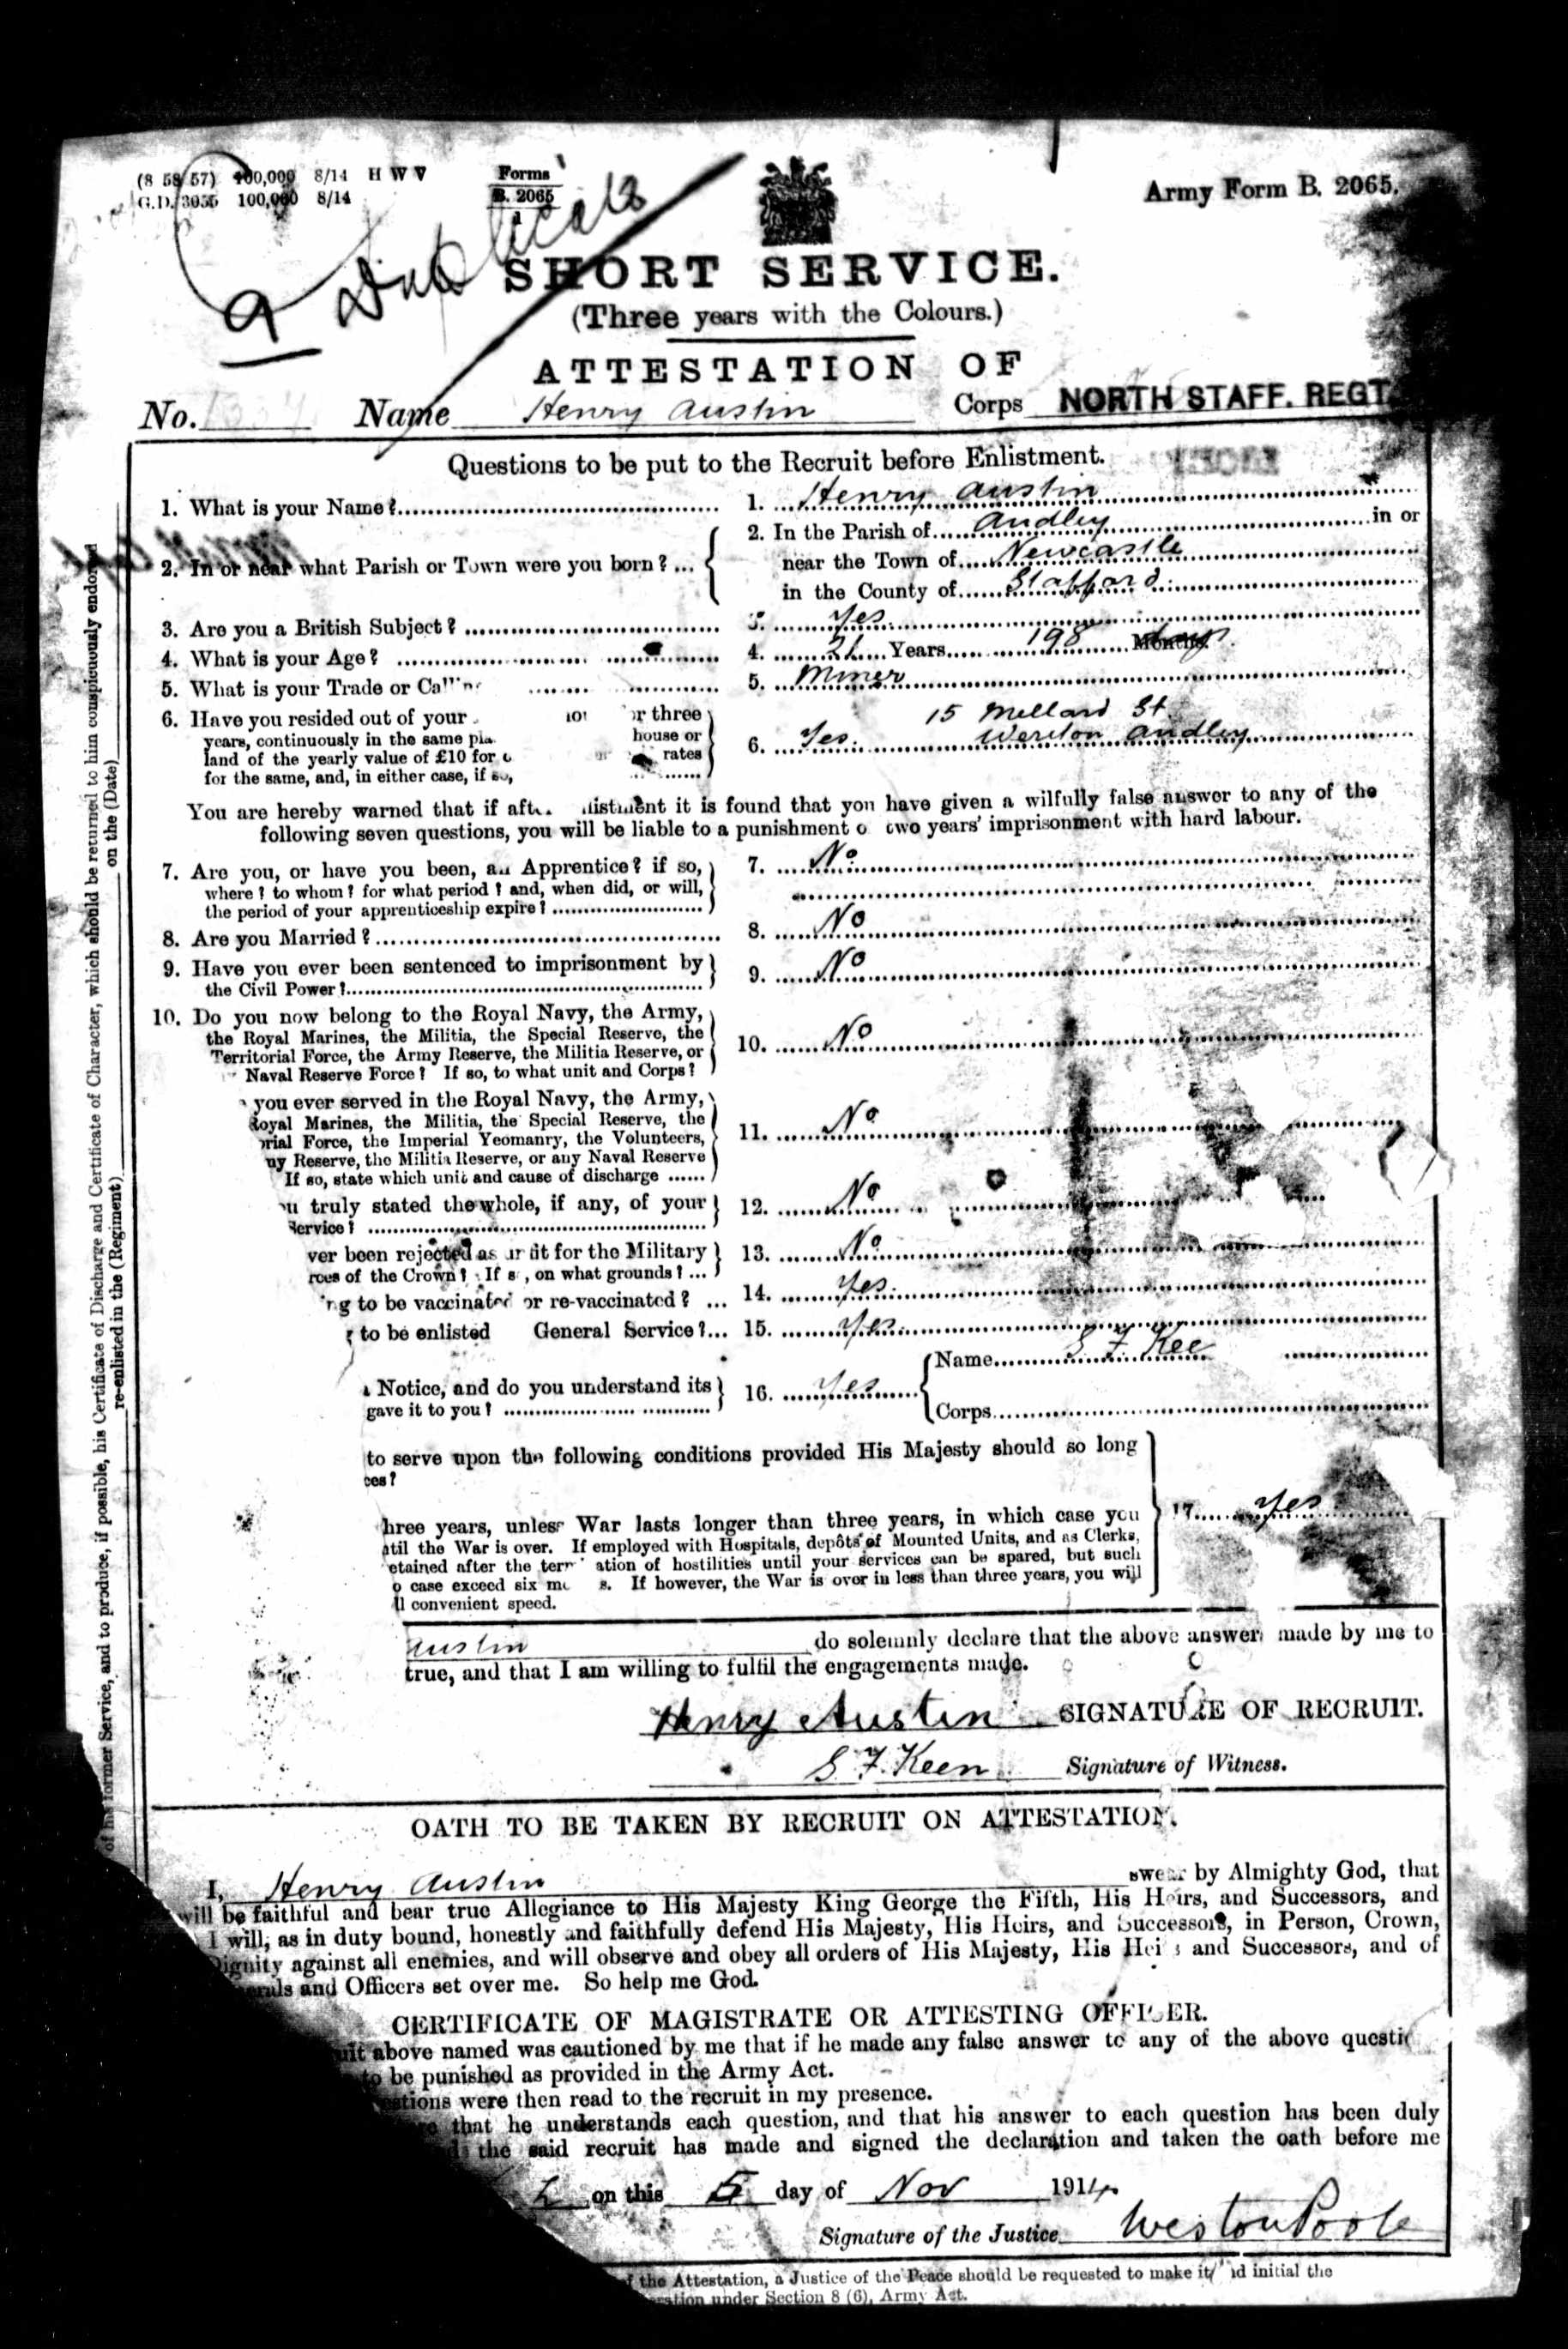 (8 58 57) 100,000 8/14 H W V
G.D. 3055 100,000 8/14
Forms
B. 2065
1
Army Form B. 2065.
Duplicate
a
SHORT SERVICE.
(Three years with the Colours.)
ATTESTATION OF
No. Name Henry Austin Corps NORTH STAFF. REGT.
Questions to be put to the Recruit before Enlistment.
1. What is your Name? 1. Henry Austin
2. In or near what Parish or Town were you born? ... 2. In the Parish of Audley in or
near the Town of Newcastle
in the County of Stafford
3. Are you a British Subject? Yes.
4. What is your Age? 4. 21 Years 198 Months. days
5. What is your Trade or 5. Miner
6. Have you resided out of your or three
years, continuously in the same house or
land of the yearly value of £10 for rates
for the same, and, in either case, if so,
6. Yes. 15 Mellard St.
Audley
You are hereby warned that if enlistment it is found that you have given a wilfully false answer to any of the
following seven questions, you will be liable to a punishment two years' imprisonment with hard labour.
7. Are you, or have you been, an Apprentice? if so, 7. No
where? to whom? for what period? and, when did, or will,
the period of your apprenticeship expire?
8. Are you Married? 8. No
9. Have you ever been sentenced to imprisonment by 9. No
the Civil Power?
10. Do you now belong to the Royal Navy, the Army,
the Royal Marines, the Militia, the Special Reserve, the
Territorial Force, the Army Reserve, the Militia Reserve, or 10. No
Naval Reserve Force? If so, to what unit and Corps?
you ever served in the Royal Navy, the Army,
Royal Marines, the Militia, the Special Reserve, the
rial Force, the Imperial Yeomanry, the Volunteers, 11. No
ny Reserve, the Militia Reserve, or any Naval Reserve
If so, state which unit and cause of discharge ......
u truly stated the whole, if any, of your 12. No
Service?
ver been rejected as unfit for the Military 13. No
rces of the Crown? If so, on what grounds? ...
ng to be vaccinated or re-vaccinated? ... 14. Yes.
to be enlisted General Service?... 15. Yes.
Name S F Kee
Notice, and do you understand its 16. Yes
gave it to you? Corps
to serve upon the following conditions provided His Majesty should so long
ces?
hree years, unless War lasts longer than three years, in which case you 17. Yes
ntil the War is over. If employed with Hospitals, depôts of Mounted Units, and as Clerks,
etained after the termination of hostilities until your services can be spared, but such
o case exceed six s. If however, the War is over in less than three years, you will
ll convenient speed.
Austin do solemnly declare that the above answers made by me to
true, and that I am willing to fulfil the engagements made.
Henry Austin SIGNATURE OF RECRUIT.
S. F. Keen Signature of Witness.
OATH TO BE TAKEN BY RECRUIT ON ATTESTATION.
I, Henry Austin swear by Almighty God, that
will be faithful and bear true Allegiance to His Majesty King George the Fifth, His Heirs, and Successors, and
I will, as in duty bound, honestly and faithfully defend His Majesty, His Heirs, and Successors, in Person, Crown,
Dignity against all enemies, and will observe and obey all orders of His Majesty, His Heirs and Successors, and of
erals and Officers set over me. So help me God.
CERTIFICATE OF MAGISTRATE OR ATTESTING OFFICER.
uit above named was cautioned by me that if he made any false answer to any of the above questi
to be punished as provided in the Army Act.
estions were then read to the recruit in my presence.
that he understands each question, and that his answer to each question has been duly
the said recruit has made and signed the declaration and taken the oath before me
on this 5 day of Nov 1914.
Signature of the Justice Weston Poole
of the Attestation, a Justice of the Peace should be requested to make it and initial the
ation under Section 8 (6), Army Act.
of his former Service, and to produce, if possible, his Certificate of Discharge and Certificate of Character, which should be returned to him conspicuously endorsed
re-enlisted in the (Regiment) on the (Date)